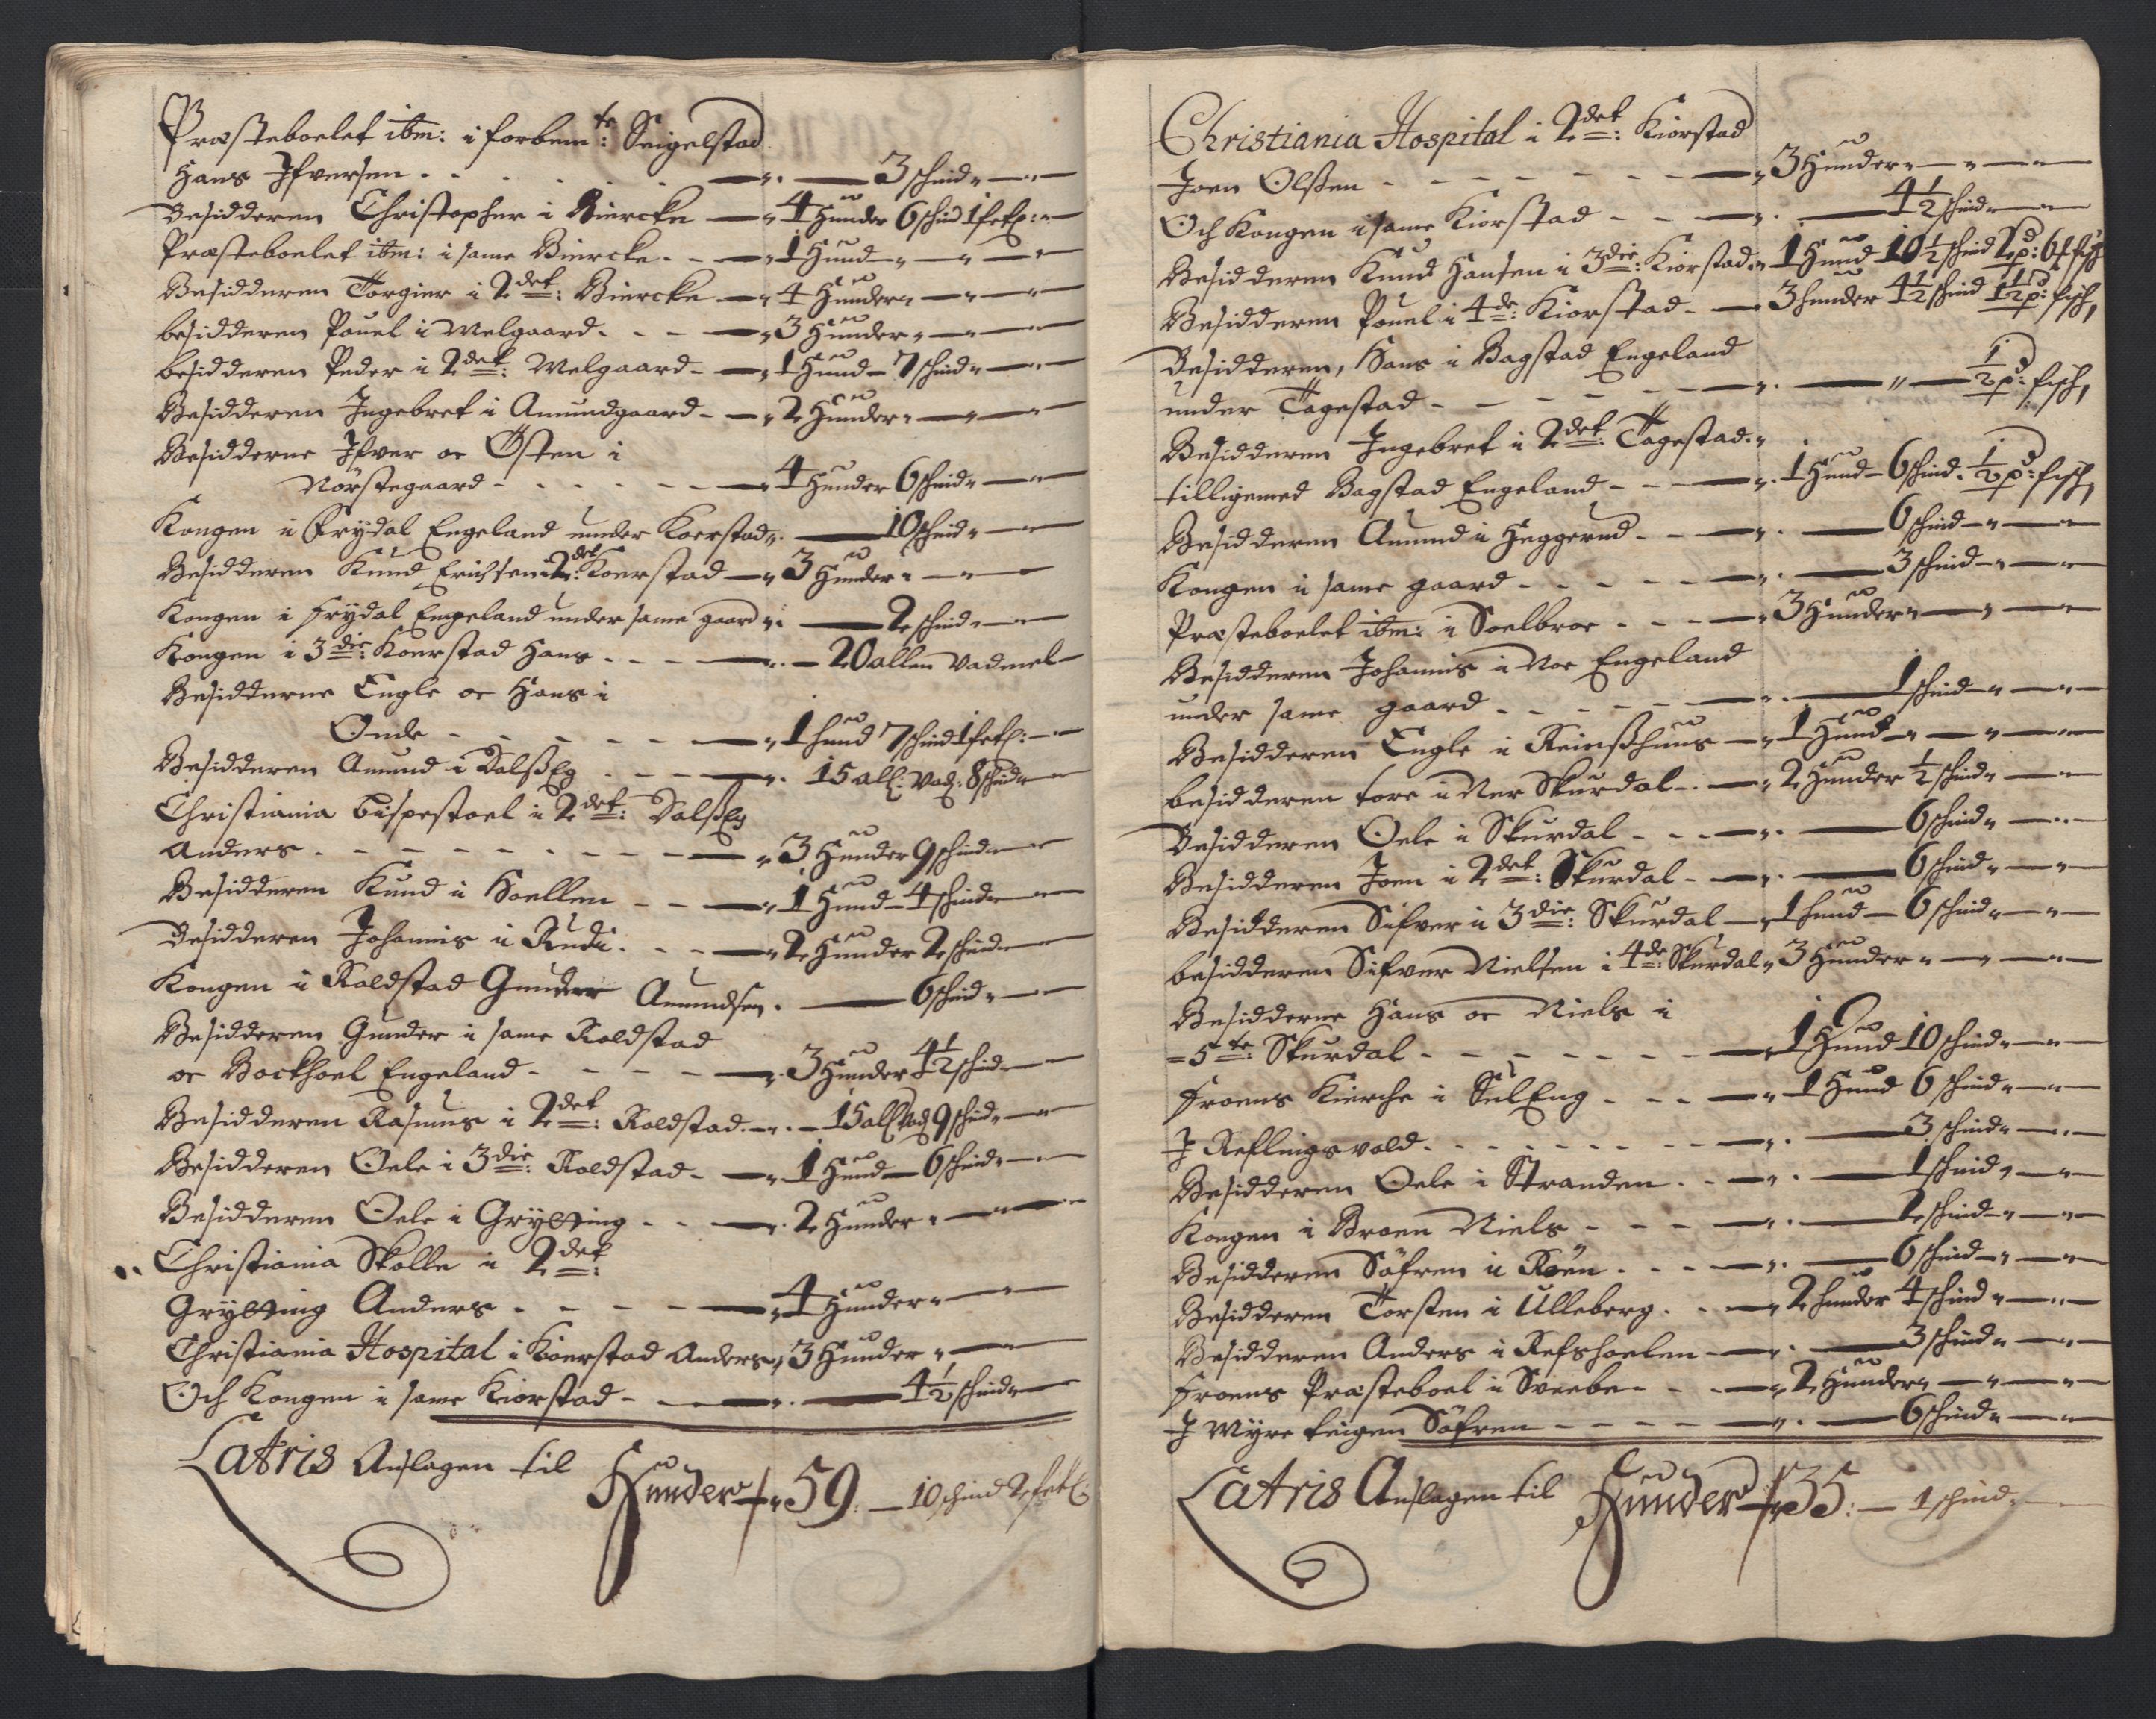 Præsteboelet ibm: i forbem:te Seigelstad
Hans Ifversen - - - 3 schind
Besidderen Christopher i Biercke - 4 Hunder 6 schind 1 fetl:
Præsteboelet ibm: i same Biercke - 1 Hund
Besidderen Torgier i 2det: Biercke - 4 Hunder
besidderen Pouel i Melgaard - 3 Hunder
besidderen Peder i 2det: Melgaard - 1 Hund - 7 schind
Besidderen Ingebret i Amundgaard - 2 Hunder
Besidderne Ifver oc Østen i
Nörstegaard - 4 Hunder 6 schind
Kongen i Frydal Engeland under Koerstad - 10 schind
Besidderen Knud Erichsen i 2det: Koerstad - 3 Hunder
Kongen i Frydal Engeland under same gaard - 2 schind
Kongen i 3die: Koerstad Hans - 20 allen Vadmel
Besidderne Engle oc Hans i
Onde - 1 hund 7 schind 1 fetl:
Besidderen Amund i Dalßeg - 15 all: Vad: 8 schind
Christiania bispestoel i 2det: Dalßeg
Anders - 3 Hunder 9 schind
Besidderen Knud i Hoellen - 1 Hund - 4 schind
Besidderen Johannis i Rudi - 2 Hunder 2 schind
Kongen i Roldstad Gunder Amundsen - 6 schind
Besidderen Gunder i same Roldstad
oc Bockhoel Engeland - 3 Hunder 4½ schind
Besidderen Rasmus i 2det: Roldstad - 15 all Vad 9 schind
Besidderen Oele i 3die: Roldstad - 1 Hund - 6 schind
Besidderen Oele i Grytting - 2 Hunder
Christiania Skolle i 2det:
Grytting Anders - 4 Hunder
Christiania Hospital i Kioerstad Anders, 3 Hunder
Och Kongen i same Kiorstad - 4½ schind
Latris Anslagen til Hunder 59: - 10 schind 2 fetl:
Christiania Hospital i 2det: Kiorstad
Joen Olßen - 3 Hunder
Och Kongen i same Kiorstad - 4½ schind
Besidderen Knud Hansen i 3die: Kiorstad - 1 Hund 10½ schind
Besidderen Pouel i 4de: Kiorstad - 3 hunder 4½ schind 1½ pd: fisch,
Besidderen, Hans i Bagstad Engeland
under Tagestad - ½ pd: fisch,
Besidderen Ingebret i 2det: Tagestad
tilligemed Bagstad Engeland - 1 Hund - 6 schind ½ pd: fisch,
Besidderen Amund i Heggerud - 6 schind
Kongen i same gaard - 3 schind
Præsteboelet ibm: i Soelbroe - 3 Hunder
Besidderen Johannis i Moe Engeland
under same gaard - 1 schind
Besidderen Engle i Reinßhuus - 1 Hund
besidderen tore i Ner Skurdal - 2 Hunder ½ schind
Besidderen Oele i Skurdal - 6 schind
Besidderen Joen i 2det: Skurdal - 6 schind
Besidderen Sifver i 3die: Skurdal - 1 hund - 6 schind
besidderen Sifver Nielsen i 4de: Skurdal 3 Hunder
Besidderne Hans oc Niels i
5te: Skurdal - 1 Hund 10 schind
Froens Kierche i SelEng - 1 Hund 6 schind
I Reflingsvold - 3 schind
Besidderen Oele i Stranden - 1 schind
Kongen i Broen Niels - 2 schind
Besidderen Söfren i Röen - 6 schind
Besidderen Torsten i Ulleberg - 2 hunder 4 schind
Besidderen Anders i Refshoelen - 3 schind
Froens Præsteboel i Sveebe - 2 Hunder
I Myre teigen Söfren - 6 schind
Latris Anslagen til Hunder 35: - 1 schind